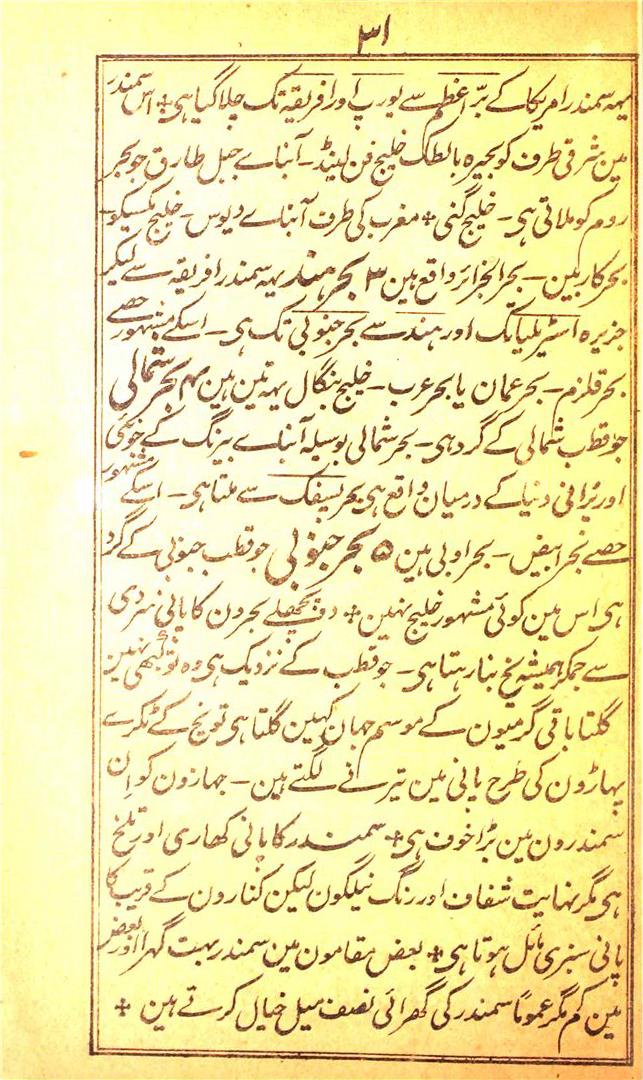 ۳۱
یہہ سمندر امریکا کے برّ اعظم سے یورپ اور افریقہ تک چلا گیا ہی + اس سمندر
مین شرقی طرف کو بحیرہ بالٹک خلیج فن لینڈ - آبناے جبل طارق جو بحر
روم کو ملاتی ہی - خلیج گنی + مغرب کی طرف آبناے دیوس - خلیج مکسیکو -
بحر کاربین - بحر الجزائر واقع ہین ۳ بحر ہند یہہ سمندر افریقہ سے لیکر
جزیرہ اسٹریلیا تک اور ہند سے بحر جنوبی تک ہی - اسکے مشہور حصے
بحر قلزم - بحر عمان یا بحر عرب - خلیج بنگال یہہ تین ہین ۴ بحر شمالی
جو قطب شمالی کے گرد ہی - بحر شمالی بوسیلہ آبناے بیرنگ کے جو نئی
اور پرانی دنیا کے درمیان واقع ہی بحر پسیفک سے ملتا ہی - اسکے مشہور
حصے بحر ابیض - بحر اوبی ہین ۵ بحر جنوبی جو قطب جنوبی کے گرد
ہی اس مین کوئی مشہور خلیج نہین + دو پچھلے بحرون کا پانی سردی
سے جمکر ہمیشہ یخ بنا رہتا ہی - جو قطب کے نزدیک ہی وہ تو کبھی نہین
گلتا باقی گرمیون کے موسم جہان کہین گلتا ہی تو یخ کے ٹکرے
پہاڑون کی طرح پانی مین تیرنے لگتے ہین - جہازون کو اِن
سمندرون مین بڑا خوف ہی + سمندر کا پانی کھاری اور تلخ
ہی مگر نہایت شفاف اور رنگ نیلگون لیکن کنارون کے قریب کا
پانی سبزی مائل ہوتا ہی + بعض مقامون مین سمندر بہت گہرا اور بعض
مین کم مگر عموماً سمندر کی گھرائی نصف میل خیال کرتے ہین +